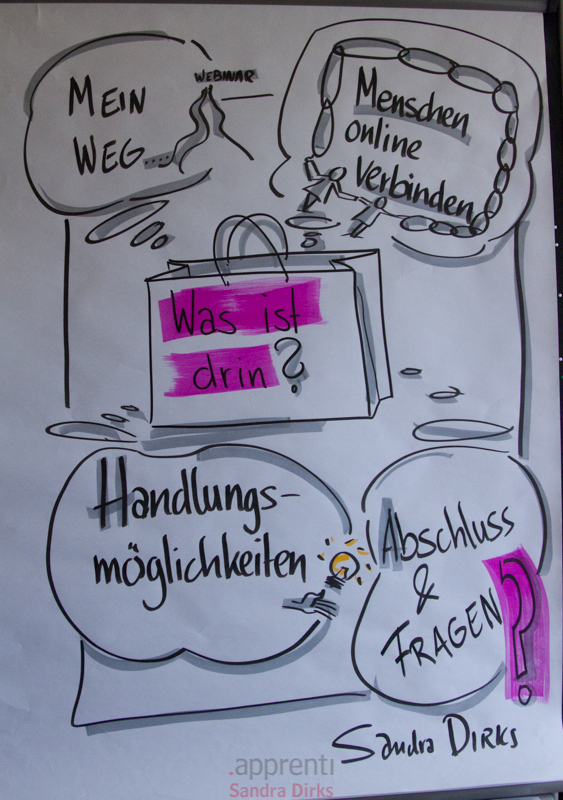 MEIN
WEG....
WEBINAR
Menschen
online
Verbinden
Was ist
drin?
Handlungs-
möglichkeiten
Abschluss
&
FRAGEN
?
Sandra DIRKS
.apprenti
Sandra Dirks